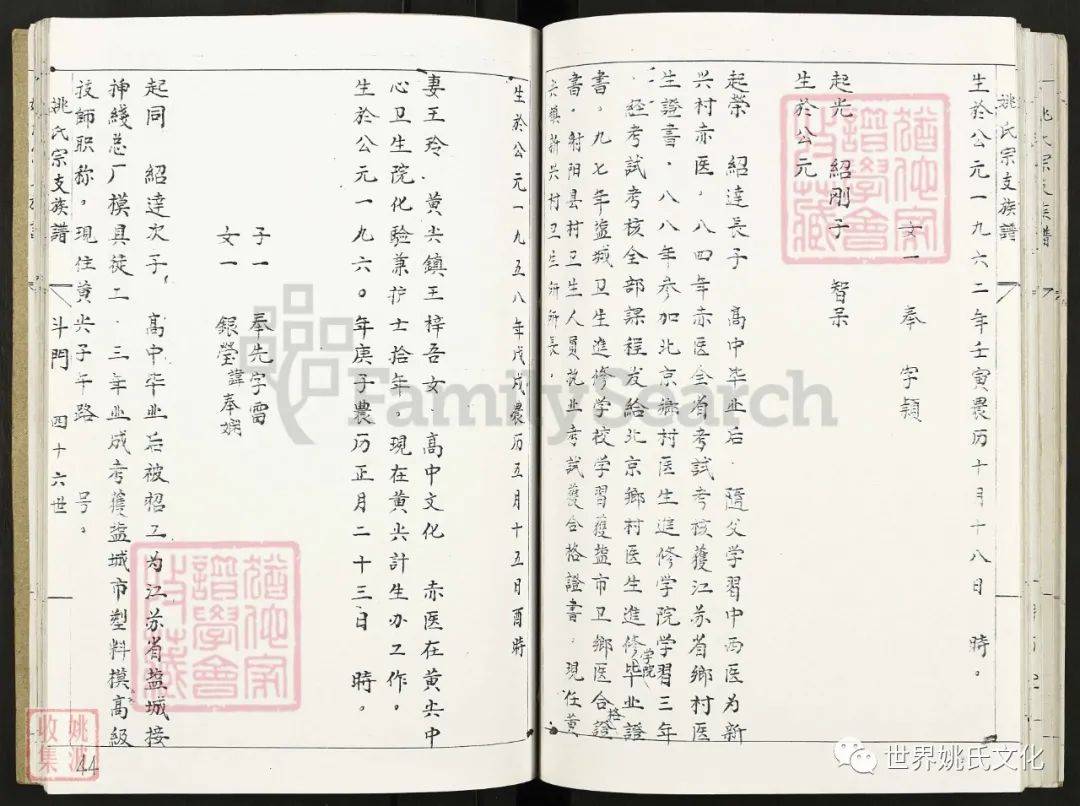 姚氏宗支族譜
生於公元一九六二年壬寅農历十月十八日 時。
女一 奉字穎
起光 紹剛子 智呆
生於公元
起榮 紹達長子 高中毕业后．随父学習中西医为新
兴村赤医．八四年赤医全省考試考核獲江苏省鄉村医
生證書．八八年参加北京鄉村医生進修学院学習三年
经考試考核全部課程发給北京鄉村医生進修学院毕业證
書。九七年盐城卫生進修学校学習獲盐市卫鄉医合格證
書。射阳县村卫生人員执业考試獲合格證書．現任黄
尖鎮新兴村卫生所所長．
生於公元一九五八年戊戌農历五月十五日酉時
妻王玲 黄尖鎮王梓吾女．高中文化 赤医在黄尖中
心卫生院化驗兼护士拾年。現在黄尖計生办工作。
生於公元一九六〇年庚子農历正月二十三日 時。
子一 奉先字雷
女一 銀瑩諱奉嫻
起同 紹達次子 高中毕业后被招工为江苏省盐城接
抻綫总厂模具徒工．三年业成考獲盐城市塑料模高級
技師职称。現住黄尖子午路 号。
姚氏宗支族譜 斗門 四十六世
44
姚波收集
FamilySearch
世界姚氏文化